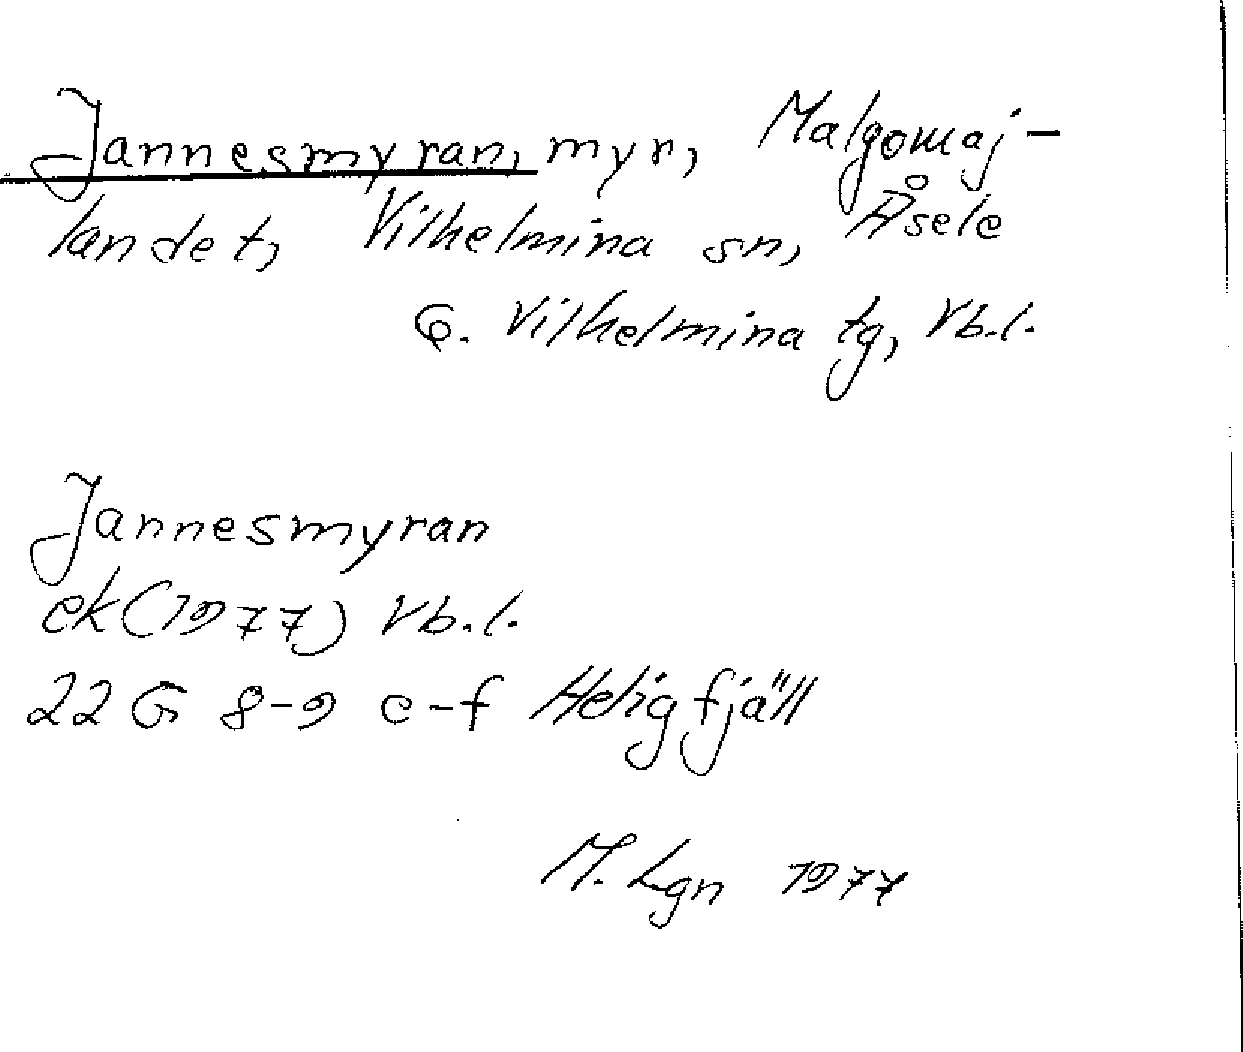 Jannesmyran, myr, Malgomaj-
landet, Vilhelmina sn, Åsele
o. Vilhelmina tg, Vb.l.
Jannesmyran
ek (1977) Vb.l.
22 G 8-9 e-f Heligfjäll
M. Lgn 1977